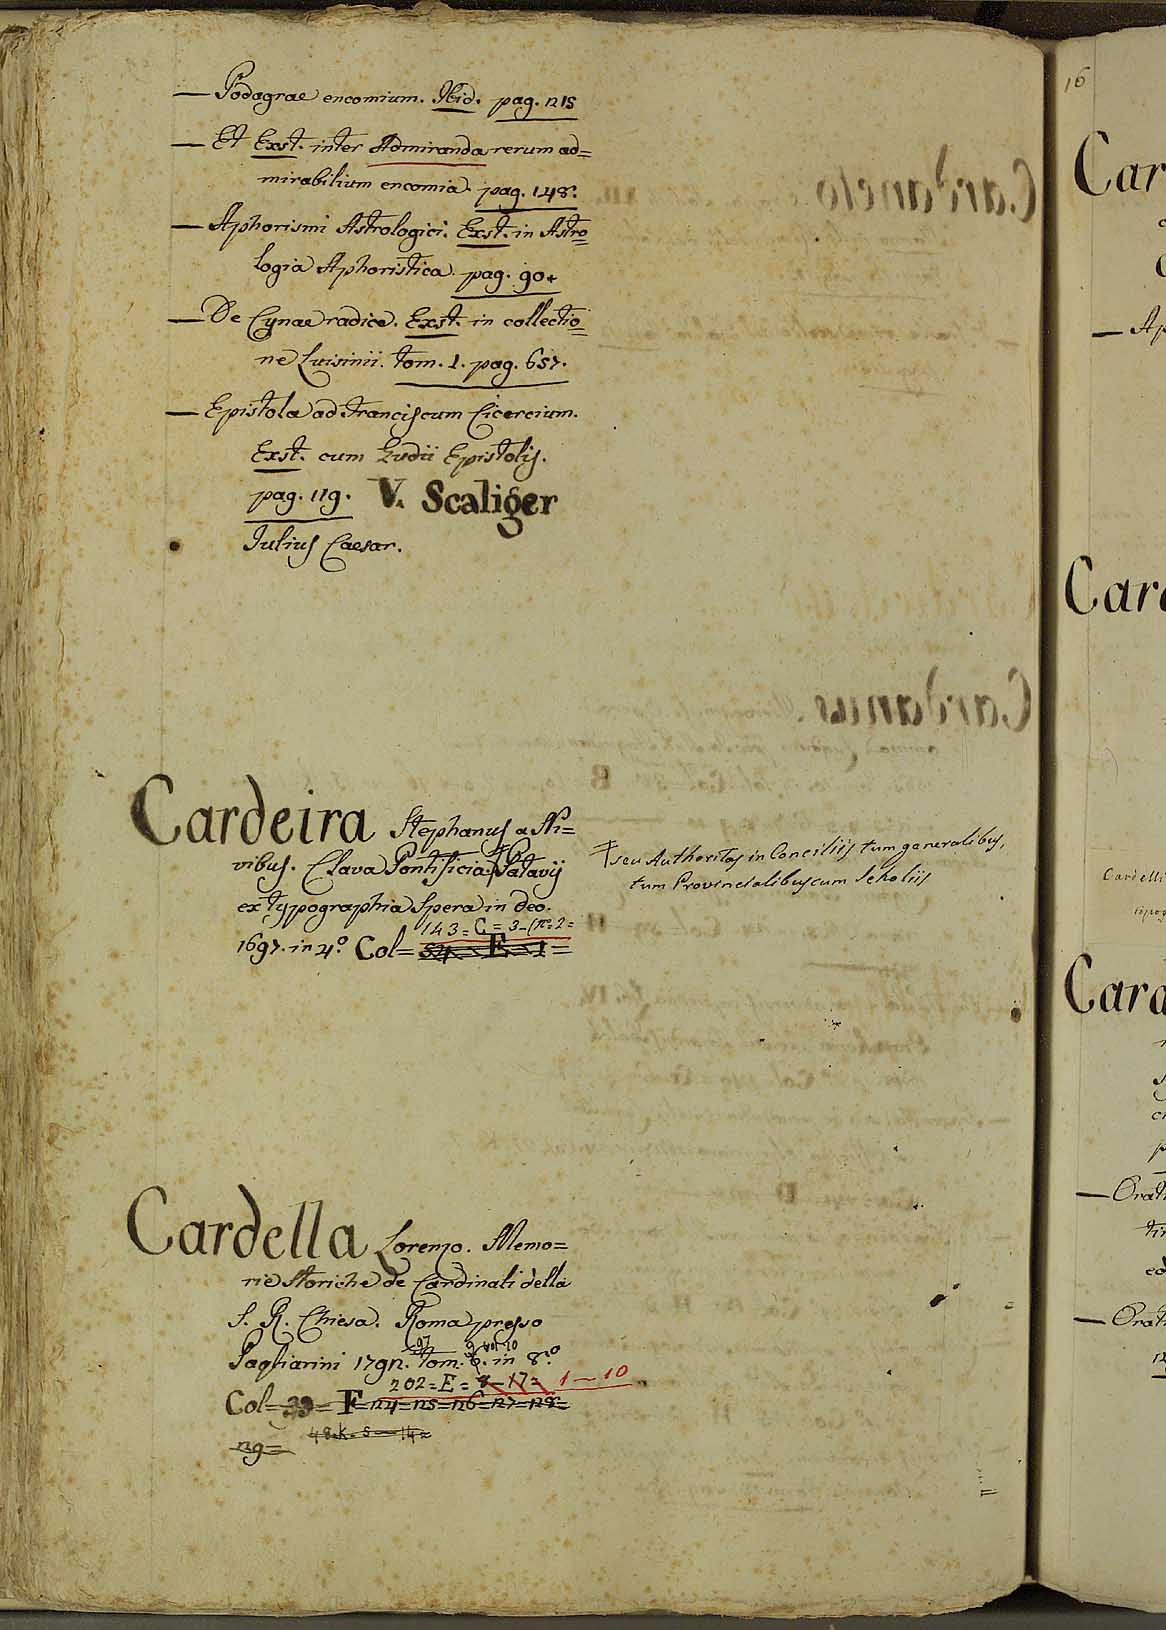 — Podagrae encomium. Ibid. pag. 215
— Et Exst. inter Admiranda rerum ad=
mirabilium encomia. pag. 148.
— Aphorismi Astrologici. Exst. in Astro=
logia Aphoristica. pag. 90.
— De Cynae radice. Exst. in collectio=
ne Luisinii. tom. 1. pag. 657.
— Epistola ad Franciscum Cicercium.
Exst. cum Ludii Epistolis.
pag. 119. V. Scaliger
Julius Caesar.
Cardeira Stephanus a Ni=
vibus. Clava Pontificia ‡ Patavij
ex typographia Spera in deo.
143 = C = 3 - (n.º 2 =
1697. in 4.º Col= 54. E = 1 =
‡ seu Authoritas in Conciliis tum generalibus,
tum Provincialibus cum Scholiis
Cardella Lorenzo. Memo=
rie Storiche de Cardinali della
S. R. Chiesa. Roma presso
97 vol 10
Pagliarini 1792. tom. 6. in 8.º
202 = E = 8 - 17 = 1 - 10
Col= 39 = F = 24 = 25 = 26 = 27 = 28 =
48. K. 5 — 14 =
29 =
16
Car
— Ap
Card
Cardelli
typog
Card
— Orati
— Orati